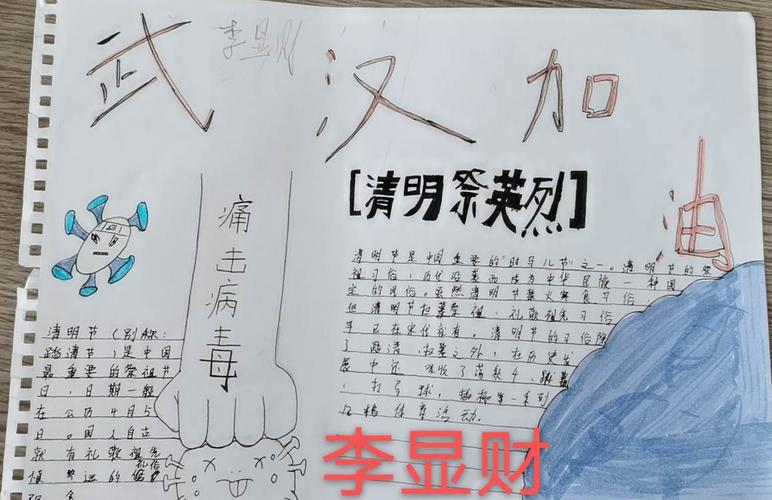 武汉加油
李显财
[清明祭英烈]
痛击病毒
清明节(别称:
踏清节)是中国
最重要的祭祖节
日,日期一般
在公历4月5
日。国人自古
就有礼敬祖先
慎终追的
礼俗
清明节是中国重要的"时年八节"之一。清明节的祭
祖习俗,历代沿袭而成为中华民族一种固
定的风俗。虽然清明节禁火寒食习俗
但清明节扫墓祭祖、礼敬祖先习俗
早已在宋代亦有。清明节的习俗除
了踏清、扫墓之外,在历史发
展中还吸收了荡秋千、蹴鞠
、打马球,插柳等一系列
风俗体育活动。
李显财